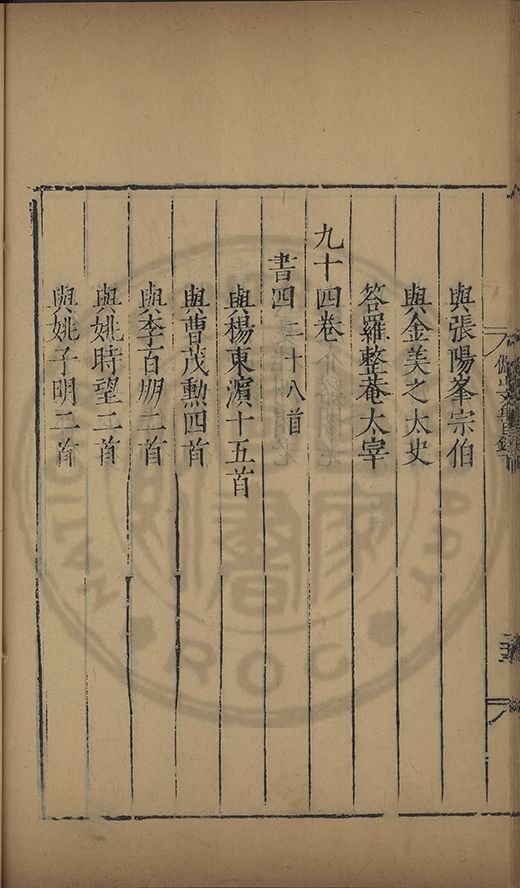 與張陽峯宗伯
與金美之太史
答羅整菴太宰
九十四卷
書四 二十八首
與楊東濵十五首
與曹茂勳四首
與李百朋二首
與姚時望二首
與姚子明二首